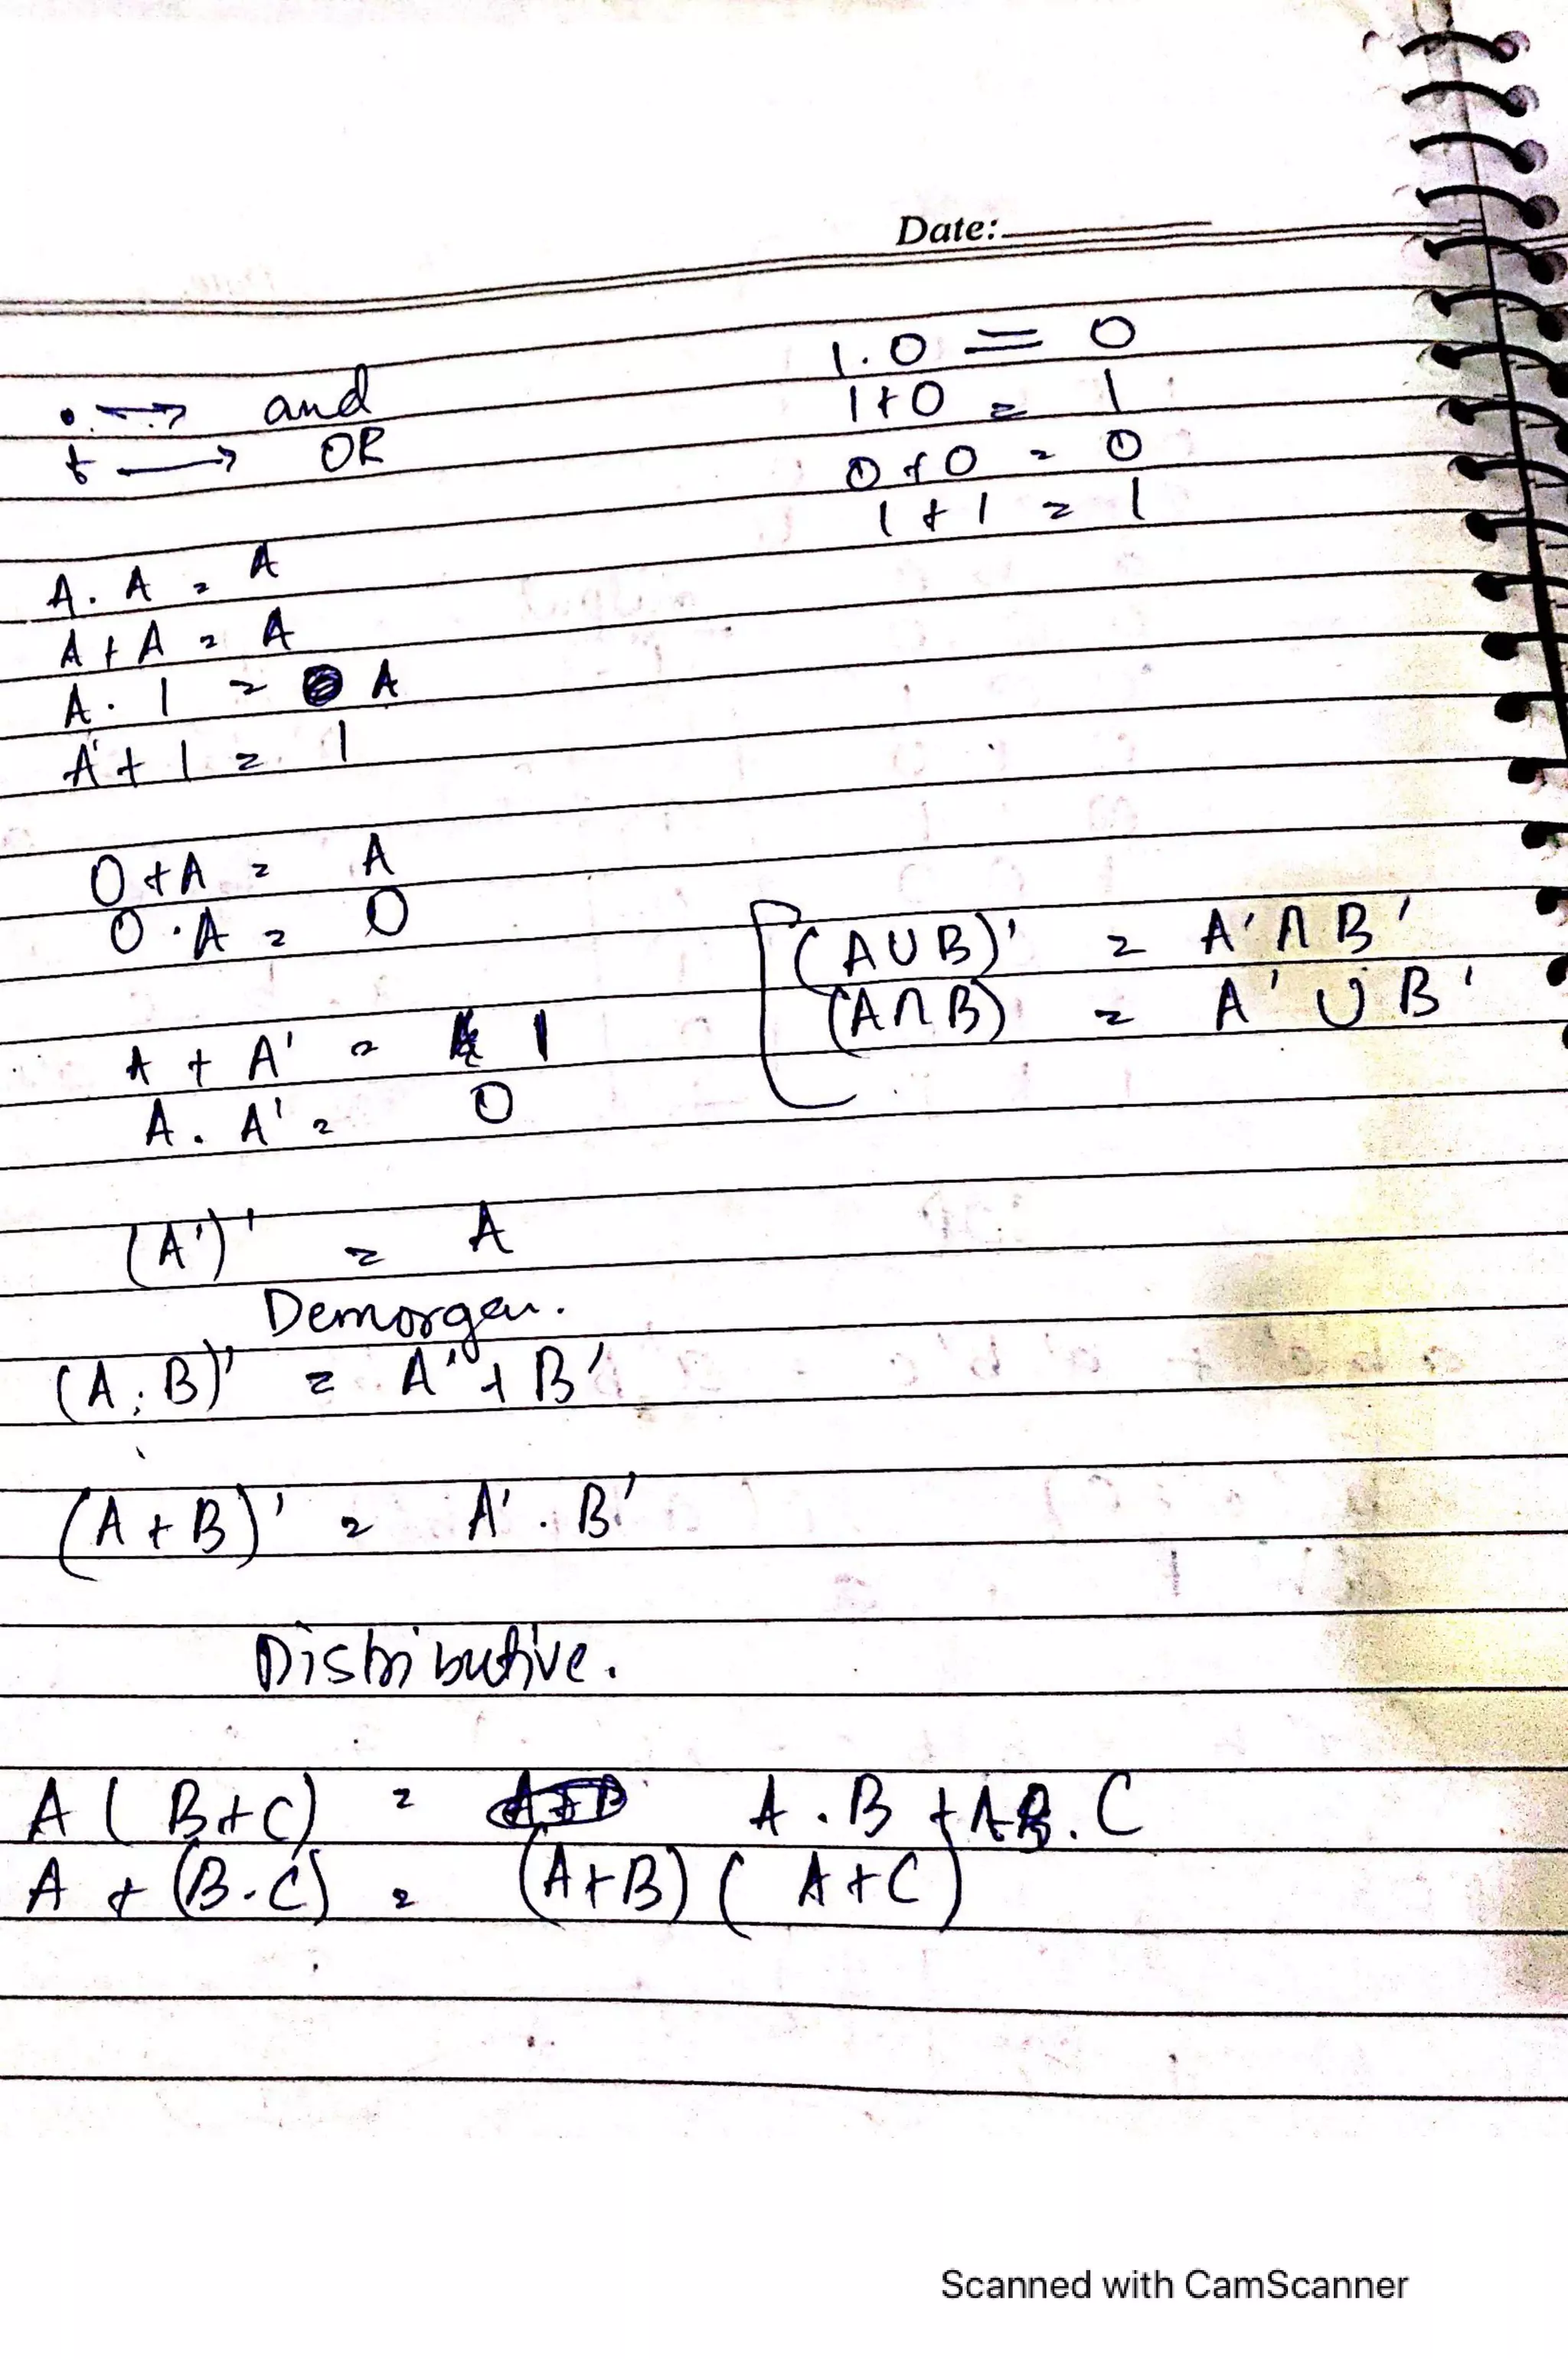 Date:
1.0 = 0
. → and
1+0 = 1
+ → OR
0+0 = 0
1+1 = 1
A.A = A
A+A = A
A.1 = A
A+1 = 1
0+A = A
0.A = 0
(A∪B)' = A'∩B'
(A∩B) = A'∪B'
A + A' = 1
A.A' = 0
(A')' = A
Demorgan.
(A.B)' = A'+B'
(A+B)' = A'.B'
Distributive.
A(B+C) = A.B + A.C
A+(B.C) = (A+B)(A+C)
Scanned with CamScanner